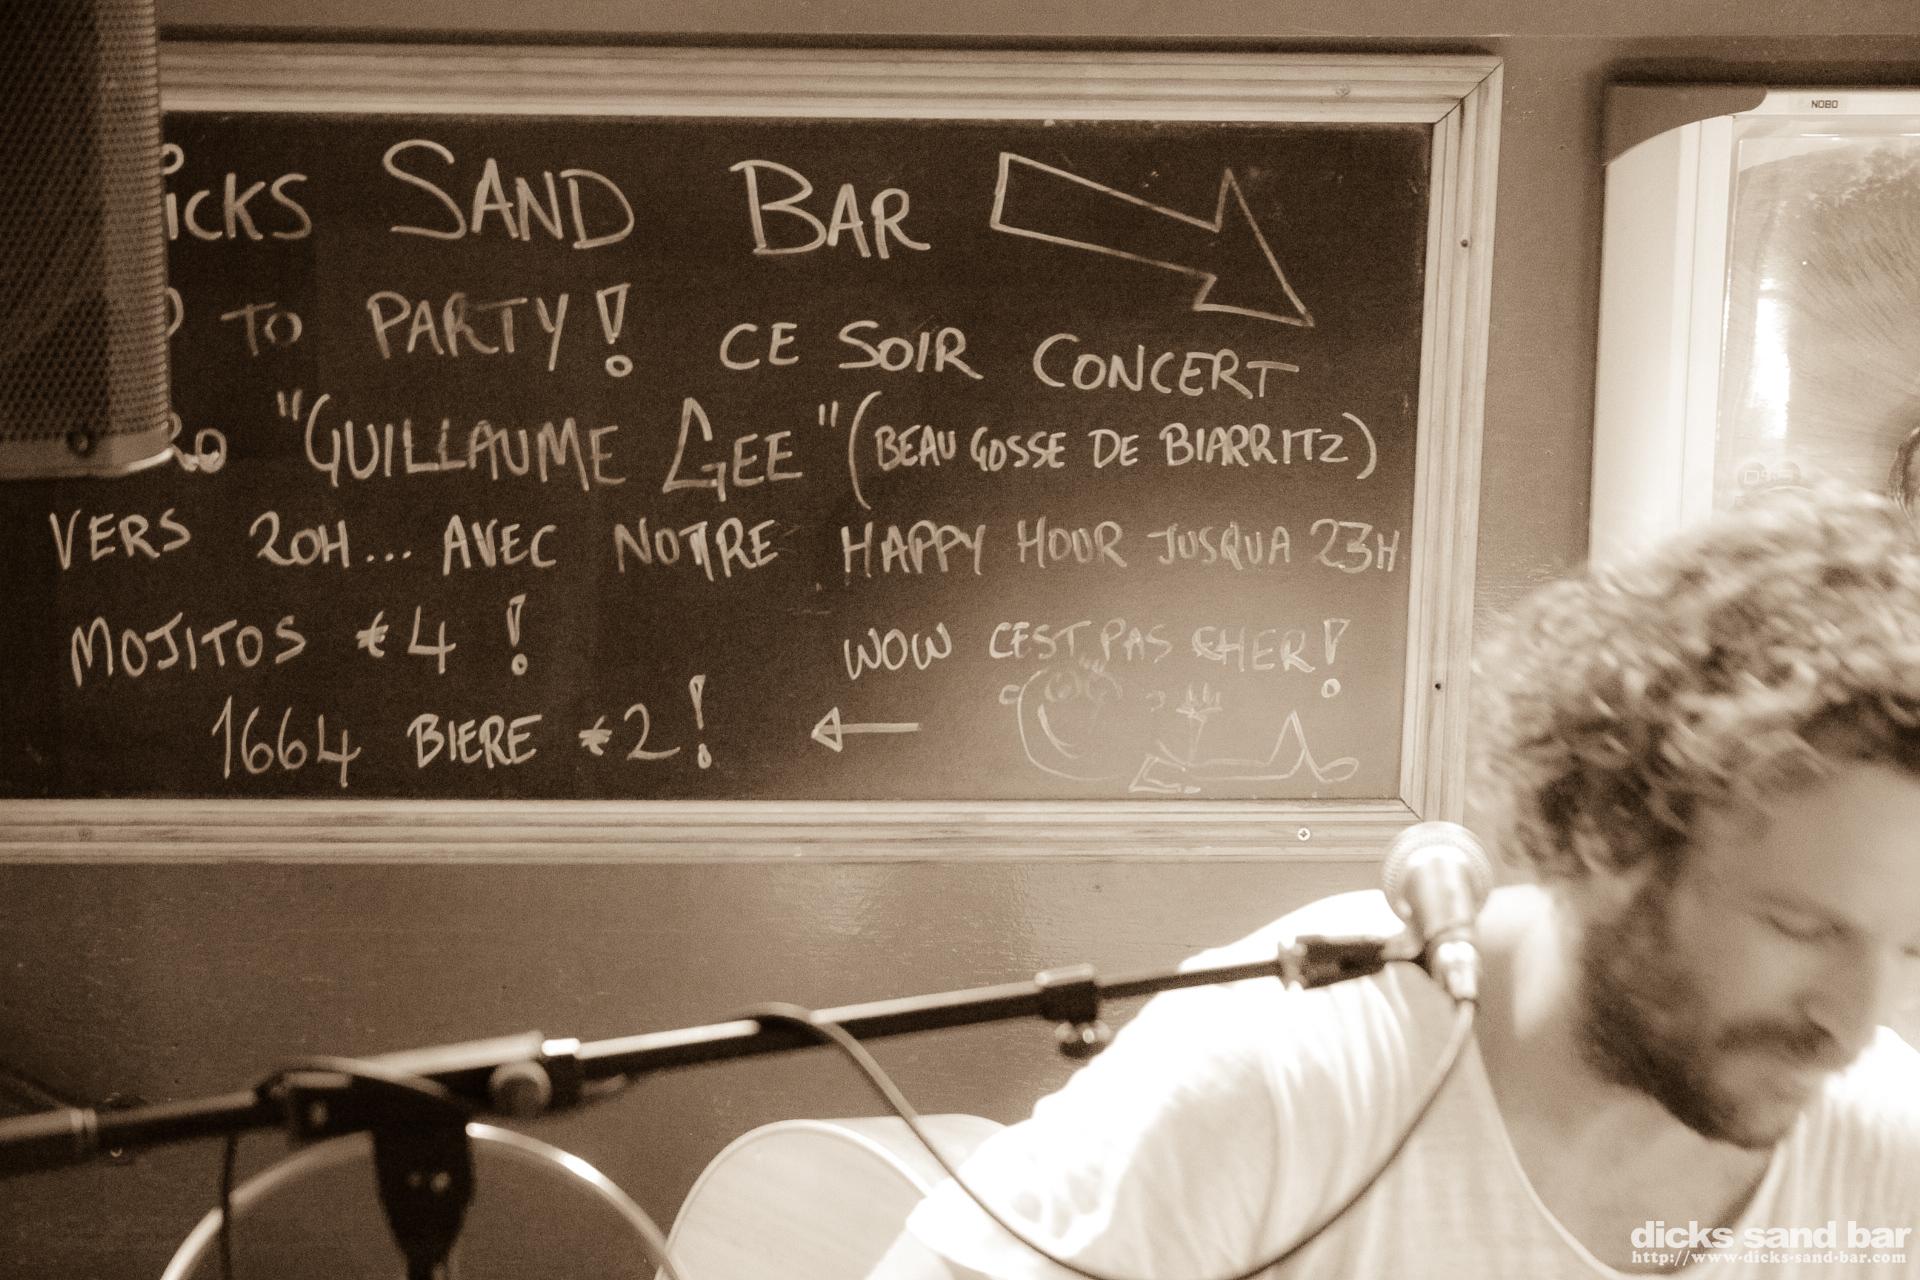 icks SAND BAR
TO PARTY! CE SOIR CONCERT
"GUILLAUME GEE" (BEAU GOSSE DE BIARRITZ)
VERS 20H... AVEC NOTRE HAPPY HOUR JUSQUA 23H
MOJITOS €4 ! WOW CEST PAS CHER!
1664 BIERE €2!
NOBO
dicks sand bar
http://www-dicks-sand-bar.com